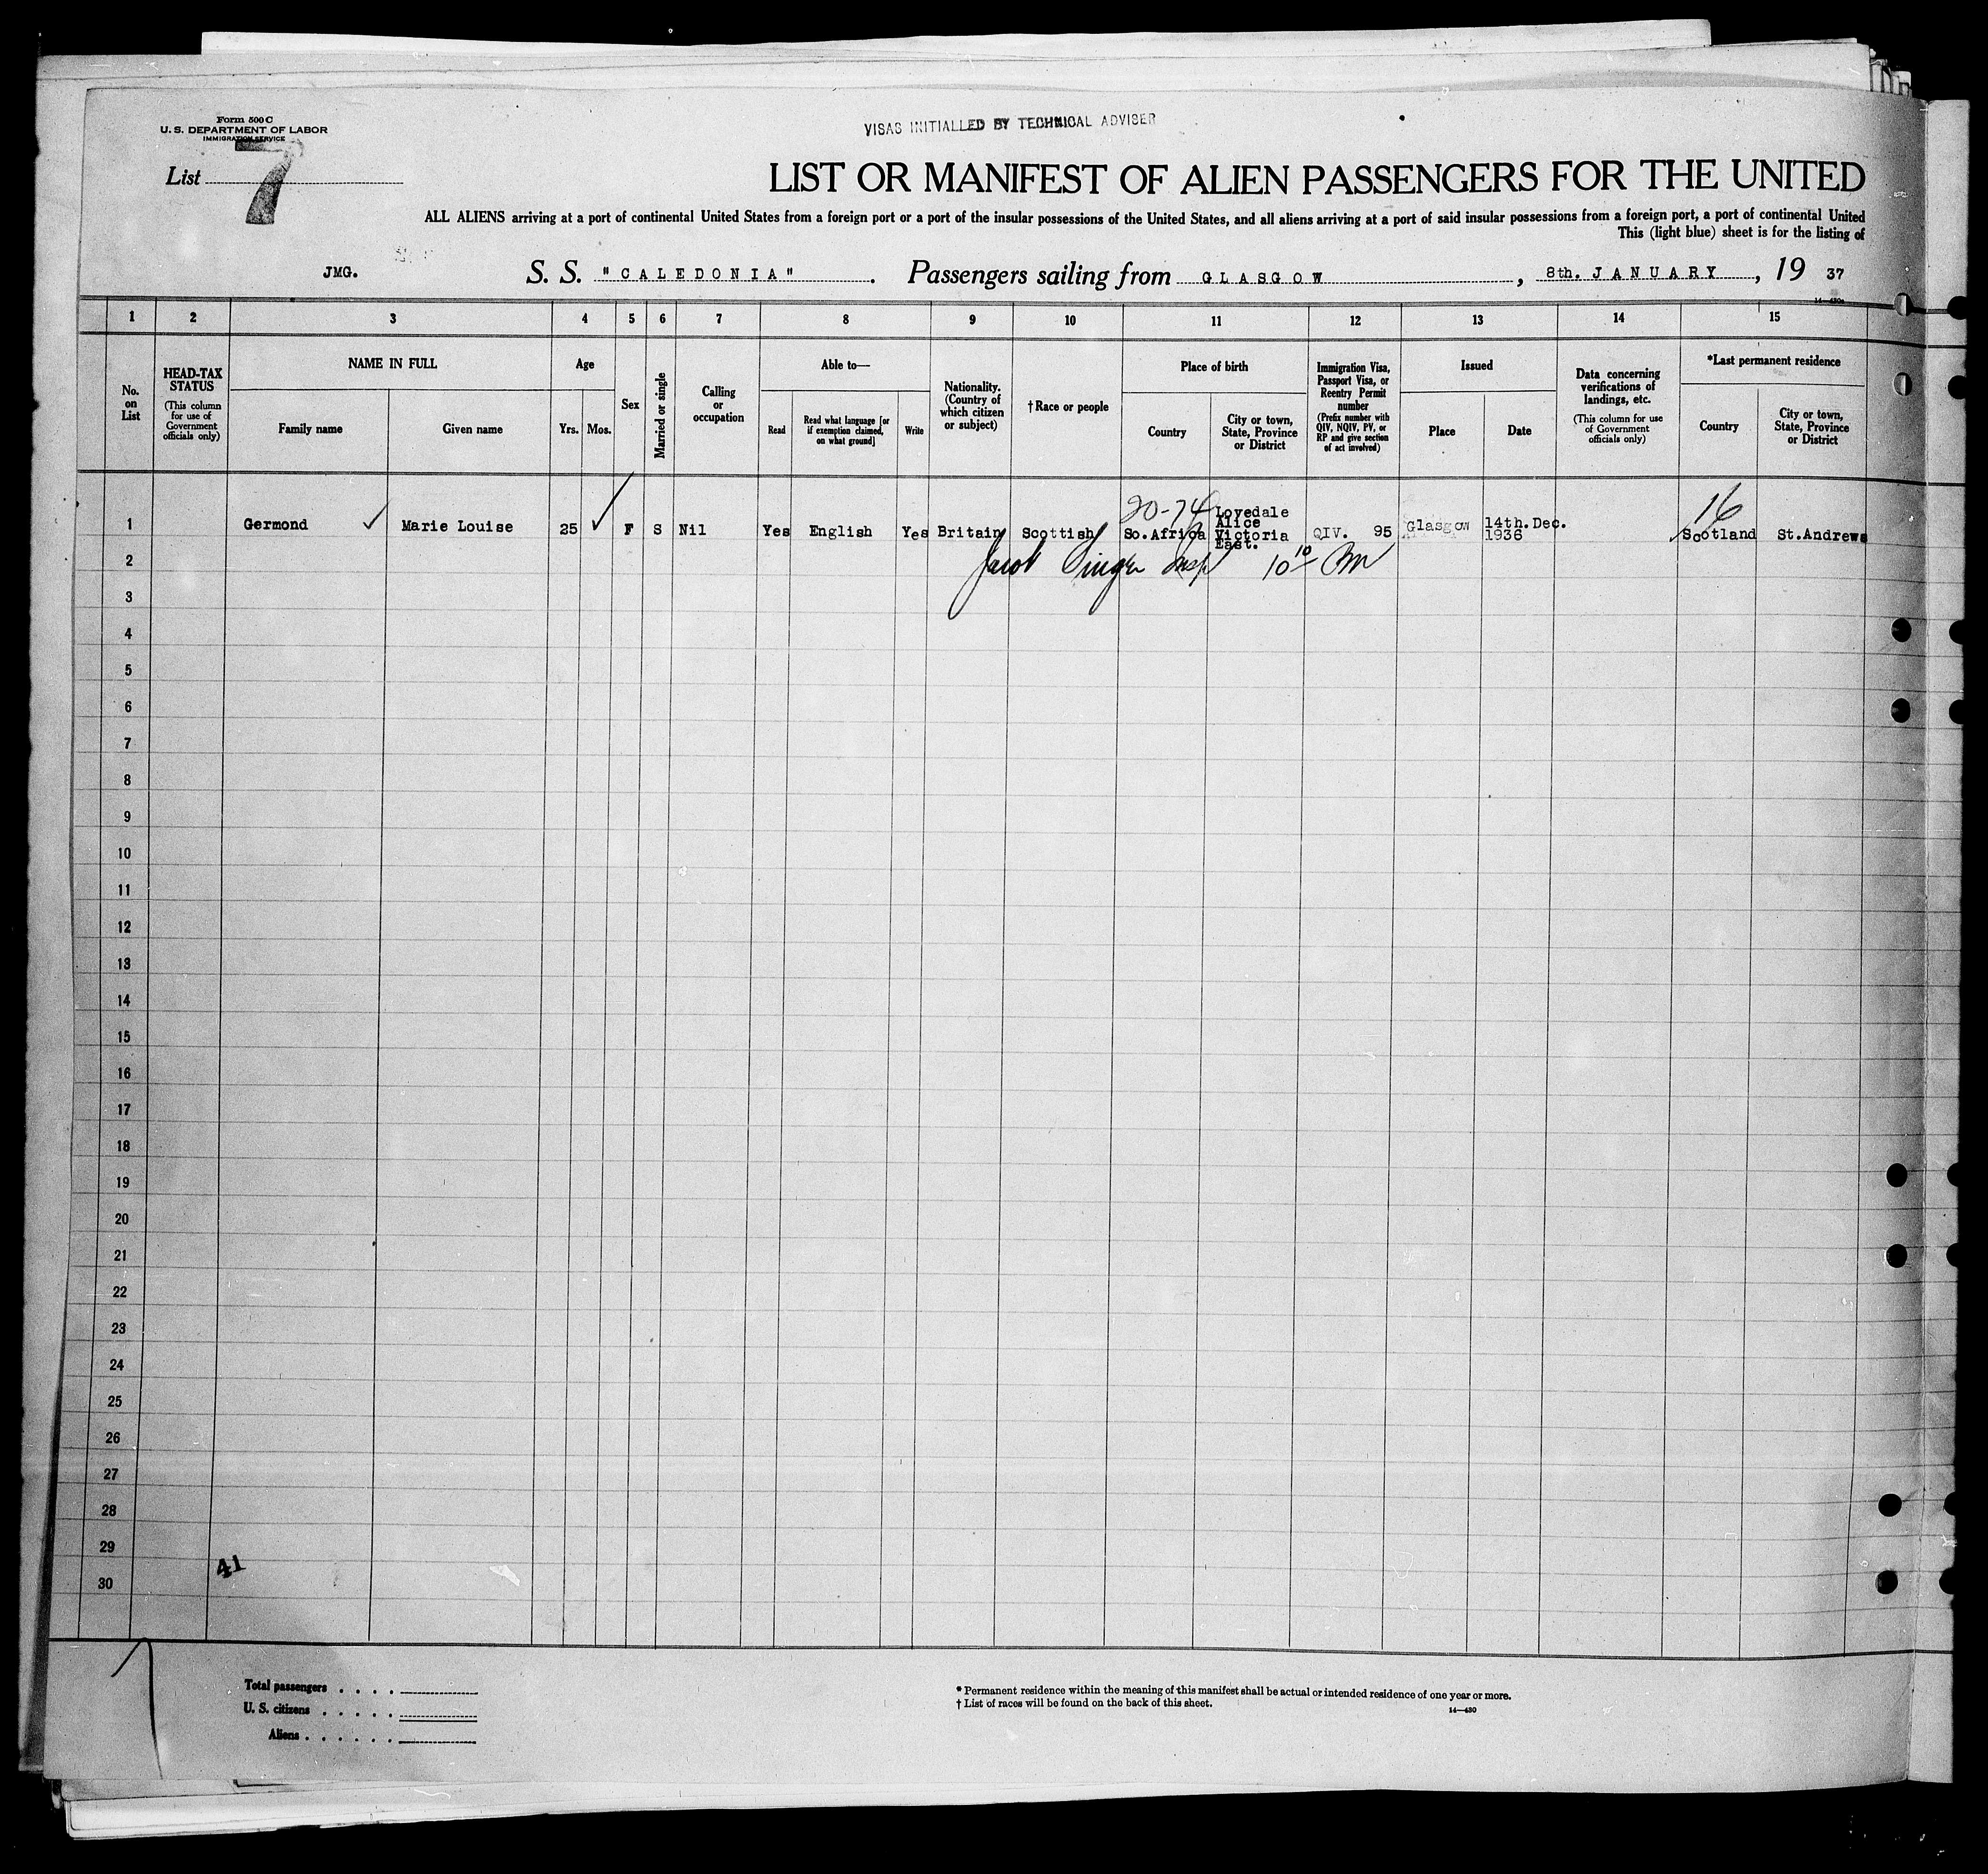 Form 500 C
U. S. DEPARTMENT OF LABOR
IMMIGRATION SERVICE
VISAS INITIALLED BY TECHNICAL ADVISER
List 7
LIST OR MANIFEST OF ALIEN PASSENGERS FOR THE UNITED
ALL ALIENS arriving at a port of continental United States from a foreign port or a port of the insular possessions of the United States, and all aliens arriving at a port of said insular possessions from a foreign port, a port of continental United
This (light blue) sheet is for the listing of
JMG. S. S. "CALEDONIA". Passengers sailing from GLASGOW, 8th. JANUARY, 19 37
14—430a
1 2 3 4 5 6 7 8 9 10 11 12 13 14 15
No.
on
List
HEAD-TAX
STATUS
(This column
for use of
Government
officials only)
NAME IN FULL
Family name Given name
Age
Yrs. Mos.
Sex
Married or single
Calling
or
occupation
Able to—
Read
Read what language [or
if exemption claimed,
on what ground]
Write
Nationality.
(Country of
which citizen
or subject)
†Race or people
Place of birth
Country
City or town,
State, Province
or District
Immigration Visa,
Passport Visa, or
Reentry Permit
number
(Prefix number with
QIV, NQIV, PV, or
RP and give section
of act involved)
Issued
Place Date
Data concerning
verifications of
landings, etc.
(This column for use
of Government
officials only)
*Last permanent residence
Country
City or town,
State, Province
or District
20-74 16
1 Germond ✓ Marie Louise 25 ✓ F S Nil Yes English Yes Britain Scottish So.Africa
Lovedale
Alice
Victoria
East.
QIV. 95 Glasgow
14th.Dec.
1936
Scotland St.Andrews
Jacob Singer Insp 10 10
2
3
4
5
6
7
8
9
10
11
12
13
14
15
16
17
18
19
20
21
22
23
24
25
26
27
28
29
41
30
Total passengers . . . .
U. S. citizens . . . . .
Aliens . . . . . .
* Permanent residence within the meaning of this manifest shall be actual or intended residence of one year or more.
† List of races will be found on the back of this sheet.
14—430